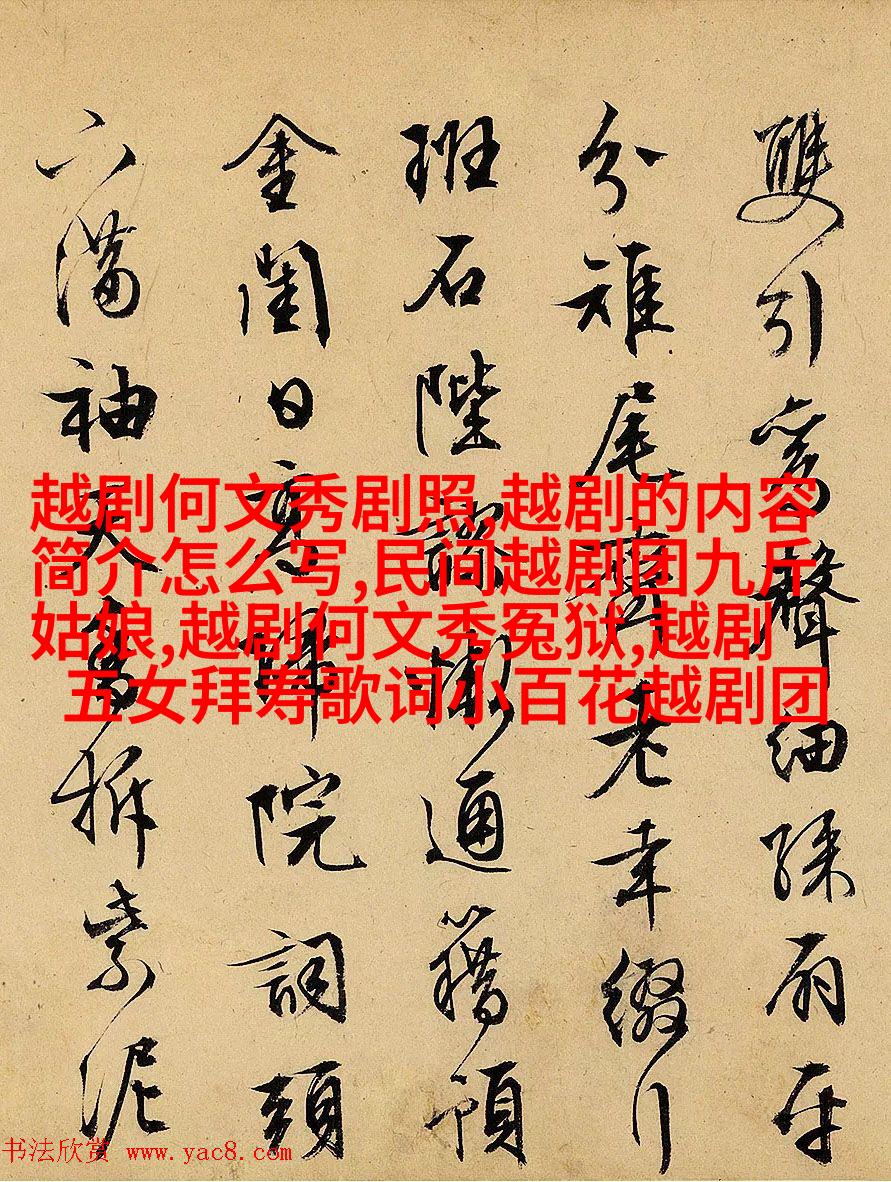 雙引聲細扇平
分雉尾齊老幸綴行
班石陛謬慚通籍預
金閨日院詞頭
下滿袖天香拆紫泥
越剧何文秀剧照,越剧的内容
简介怎么写,民间越剧团九斤
姑娘,越剧何文秀冤狱,越剧
五女拜寿歌词小百花越剧团
书法欣赏 www.yac8.com